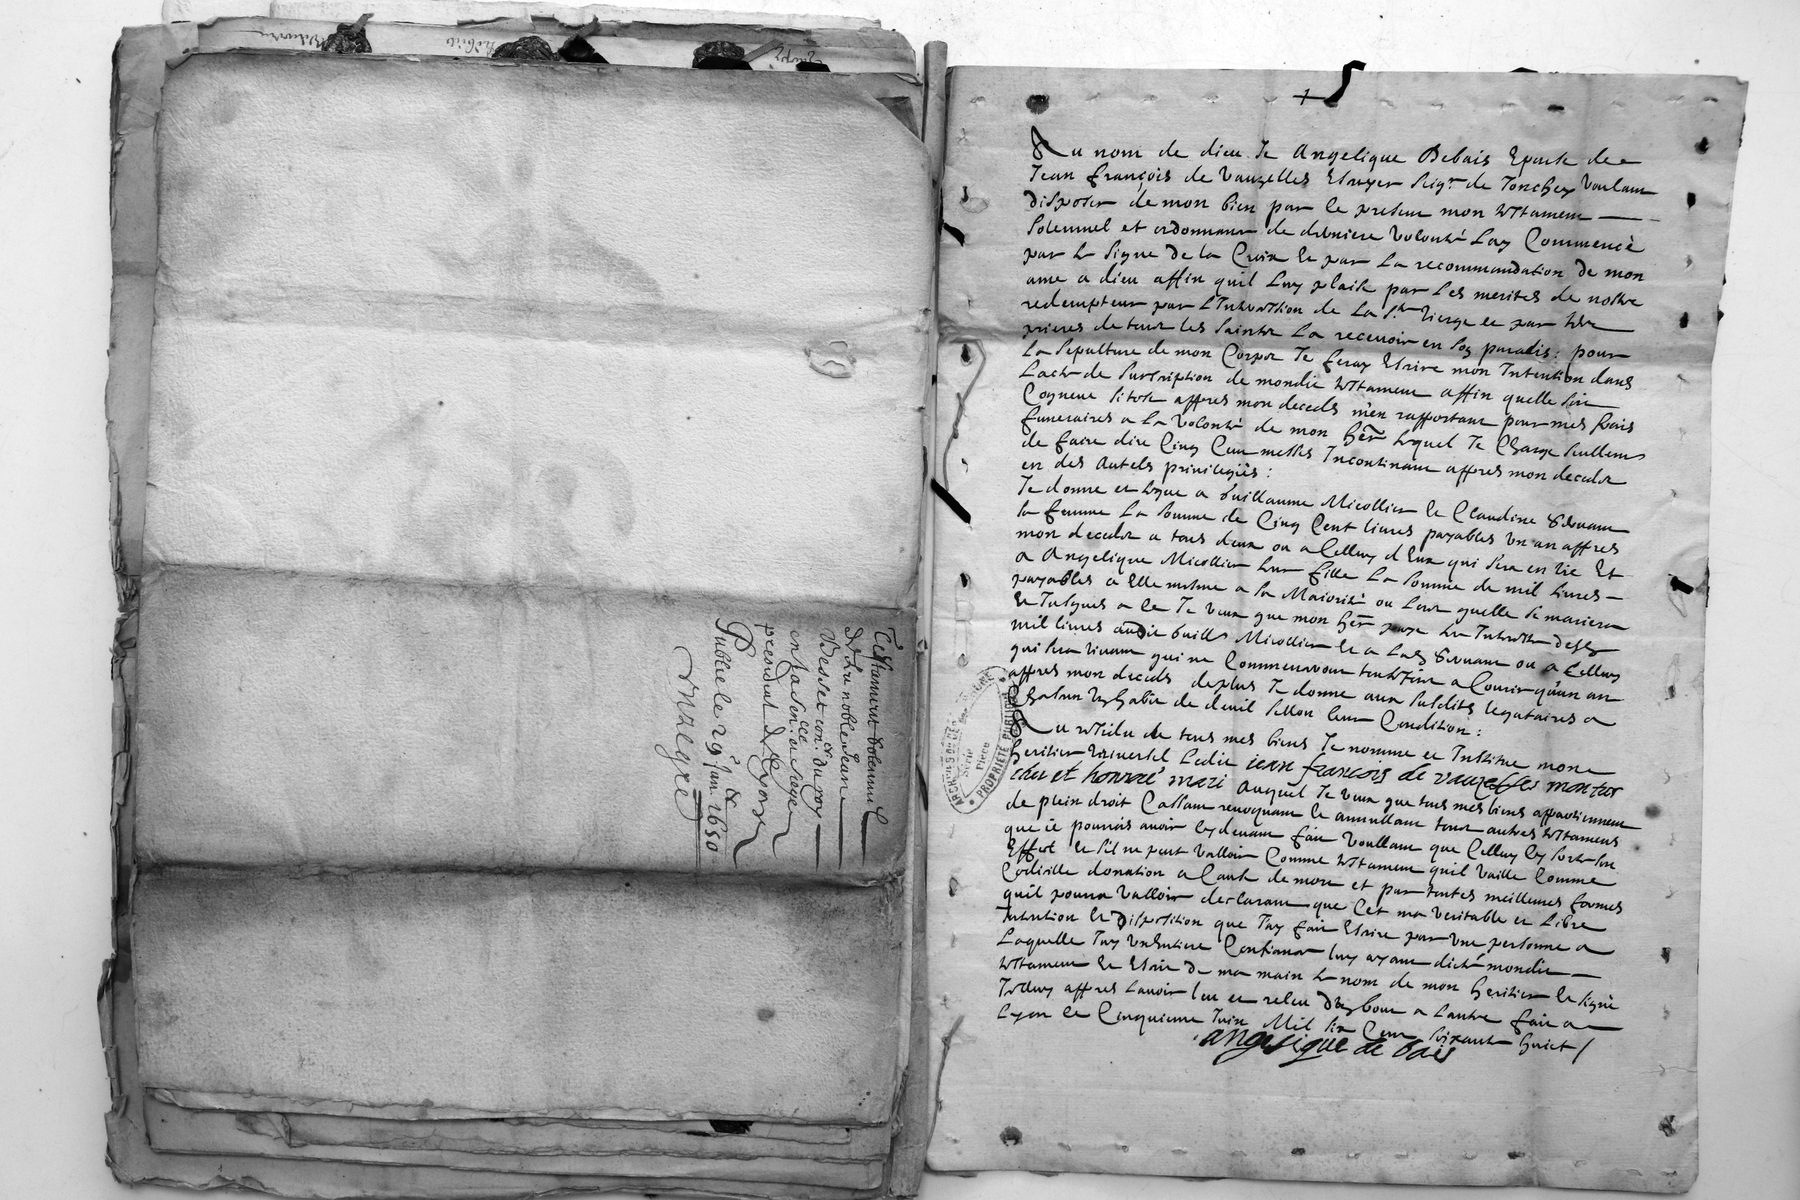 Testament solemnel
de feu noble Jean
Besset con.er du roy
en la sen.cee et siege
presidial de Lyon
Publié le 29e Jan.er 1650
1
Au nom de dieu Je Angelique Debais Epouse de
Jean françois de Vauzelles Escuyer Seigr. de Tonchey Voulant
disposer de mon bien par le present mon testament
Solemnel et ordonnance de derniere Volonté Lay Commencé
par le Signe de la Croix et par La recommandation de mon
ame a dieu affin quil Luy plaise par Les merites de nostre
redempteur par l'Intercession de La Ste Vierge et par les
prieres de tous les Saints La recevoir en son paradis : pour
La Sepulture de mon Corps Je feray Escrire mon Intention dans
Lacte de Suscription de mondit testament affin quelle soit
Cogneue sitost appres mon deceds m'en rapportant pour mes frais
funeraires a La Volonté de mon her lequel Je Charge Seullement
de faire dire Cinq Cent messes Incontinant appres mon decedz
en des Autels privilegiés :
Je donne et legue a Guillaume Micollier et Claudine
sa femme La somme de Cinq Cent livres payables un an appres
mon decedz a tous deux ou a Celluy d'Eux qui sera en vie Et
a Angelique Micollier leur fille La somme de mil livres
payables a Elle mesme a sa Maiorité ou Lors quelle se mariera
Et Jusques a ce Je Veux que mon her paye les Interests desd
mil livres audit Guille Micollier et a Lad ou a Celluy
qui sera vivant qui ne Commenceront toutesfois a Courir qu'un an
appres mon deceds deplus Je donne aux susdits legataires a
Chascun un habit de deuil sellon leur Condition :
Au residu de tous mes biens Je nomme et Institue mon
heritier Universel Ledit iean francois de vauzelles mon tres
cher et honnoré mari auquel Je Veux que tous mes biens appartiennent
de plein droit Cassant revoquant et annullant tous autres testamens
que ie pourrois avoir cy devant fait Voullant que Celluy cy sorte son
Effect et sil ne peut Valloir Comme testament quil Vaille Comme
Codicille donation a Cause de mort et par toutes meilleures formes
quil pourra Valloir declarant que Cet ma Veritable et Libre
Intention et Disposition que Jay fait Escrire par une personne a
Laquelle Jay un Entiere Confiance luy ayant dicté mondit
testament et Escrit de ma main le nom de mon heritier et signé
Icelluy appres Lavoir leu et releu D'un bout a Lautre fait a
Lyon le Cinquieme Juin Mil six Cent soixante huict
angelique de bais
PROPRIETE PUBLIQUE